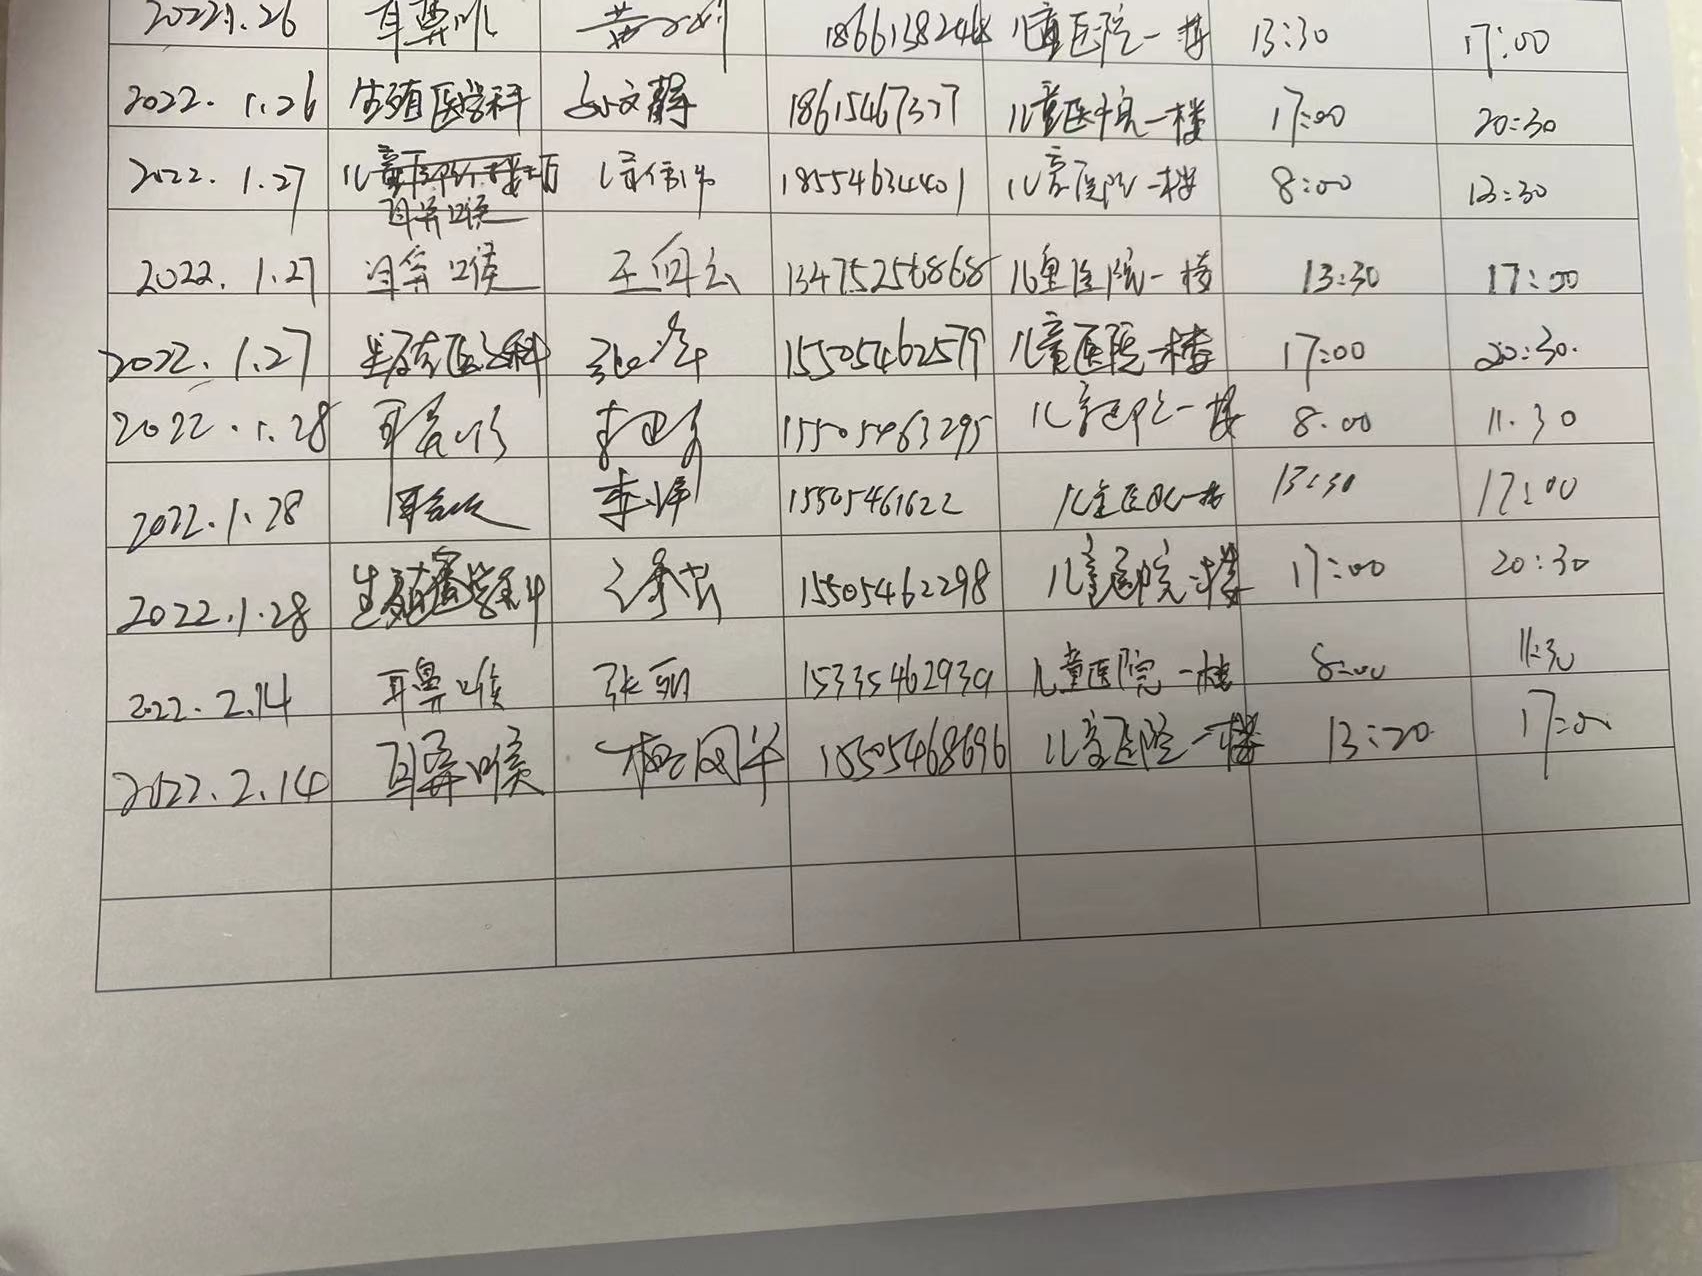 2022.1.26 耳鼻喉 黄 18661382448 儿童医院一楼 13:30 17:00
2022.1.26 生殖医学科 孙文静 18615467377 儿童医院一楼 17:00 20:30
2022.1.27 耳鼻喉 18554634401 儿童医院一楼 8:00 13:30
2022.1.27 耳鼻喉 王 13475256868 儿童医院一楼 13:30 17:00
2022.1.27 生殖医学科 张 15505462579 儿童医院一楼 17:00 20:30.
2022.1.28 耳鼻喉 李 15505463295 儿童医院一楼 8.00 11.30
2022.1.28 耳鼻喉 李 15505461622 儿童医院一楼 13:30 17:00
2022.1.28 生殖医学科 15505462298 儿童医院一楼 17:00 20:30
2022.2.14 耳鼻喉 张丽 15335462939 儿童医院一楼 8:00 11:30
2022.2.14 耳鼻喉 15505468696 儿童医院一楼 13:20 17:00